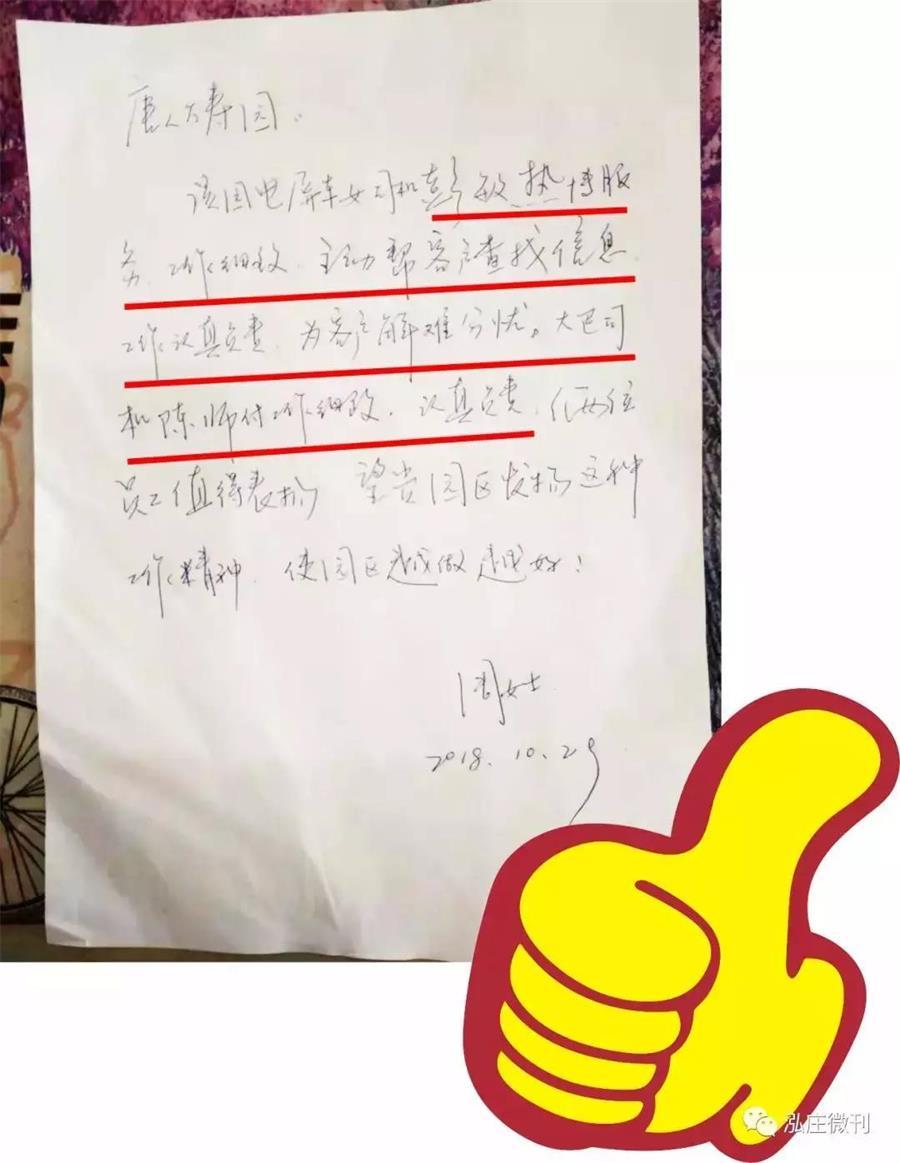 唐人万寿园。
该园电屏车女司机彭敏热情服
务,工作细致,主动帮客户查找信息,
工作认真负责,为客户解难分忧。大巴司
机陈师付工作细致,认真负责,们两位
员工值得表扬 望贵园区发扬这种
工作精神,使园区越做越好!
周女士
2018.10.29
泓庄微刊